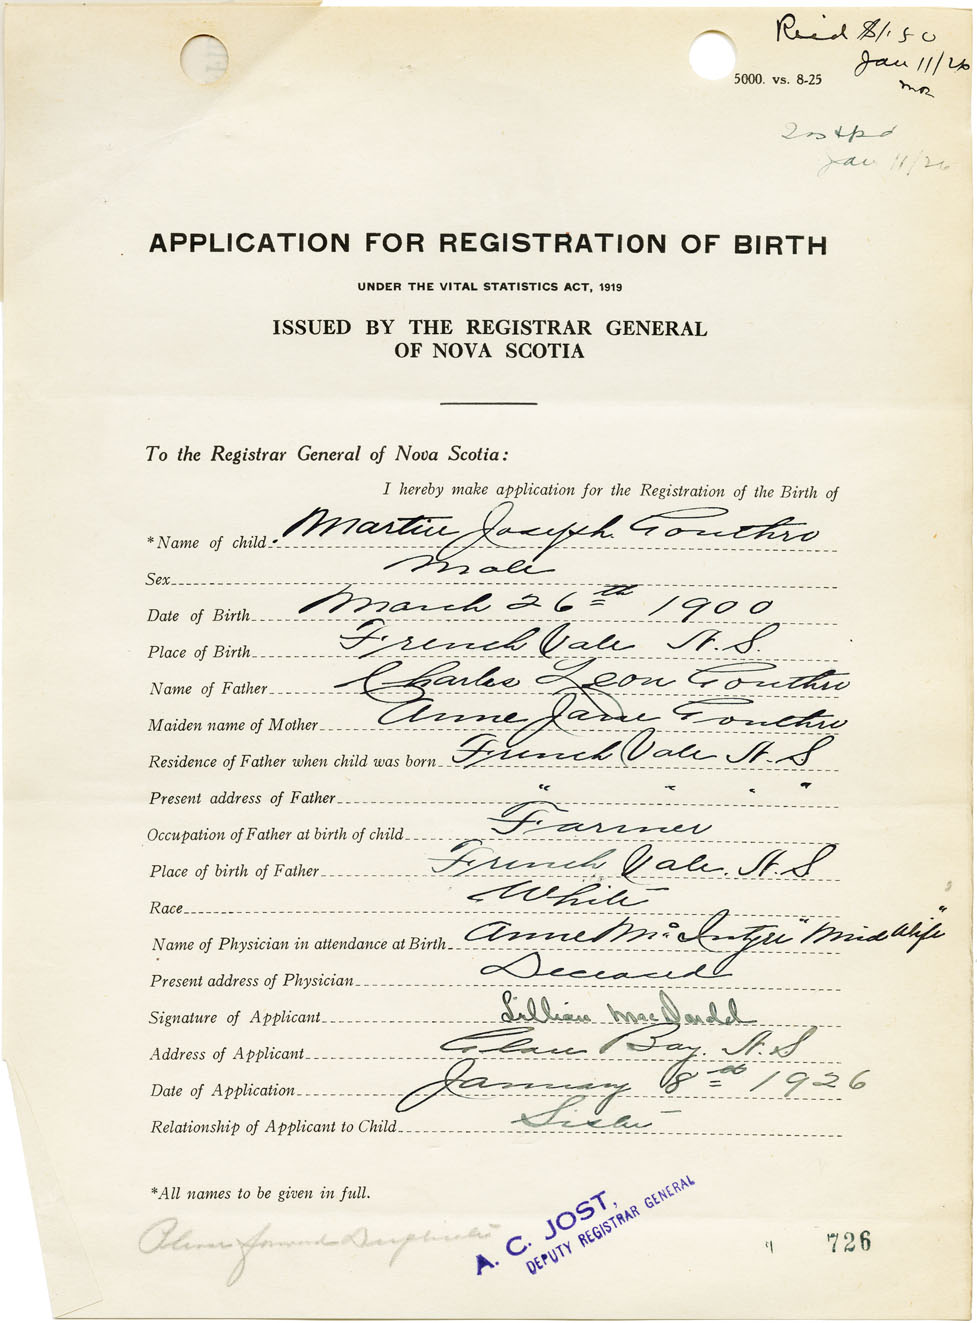 Rec'd $1.50
Jan 11/26
5000. vs. 8-25
Jan 11/26
APPLICATION FOR REGISTRATION OF BIRTH
UNDER THE VITAL STATISTICS ACT, 1919
ISSUED BY THE REGISTRAR GENERAL
OF NOVA SCOTIA
To the Registrar General of Nova Scotia:
I hereby make application for the Registration of the Birth of
*Name of child. Martin Joseph Gouthro
Sex Male
Date of Birth March 26th 1900
Place of Birth French Vale N.S.
Name of Father Charles Leon Gouthro
Maiden name of Mother Anne Jane Gouthro
Residence of Father when child was born French Vale N.S
Present address of Father " " " "
Occupation of Father at birth of child Farmer
Place of birth of Father French Vale. N.S
Race White
Name of Physician in attendance at Birth Anne McIntyre "Mid Wife"
Present address of Physician Deceased
Signature of Applicant Lillian MacDonald
Address of Applicant Glace Bay. N.S
Date of Application January 8th 1926
Relationship of Applicant to Child Sister
*All names to be given in full.
Please forward Duplicate
A. C. JOST,
DEPUTY REGISTRAR GENERAL
726